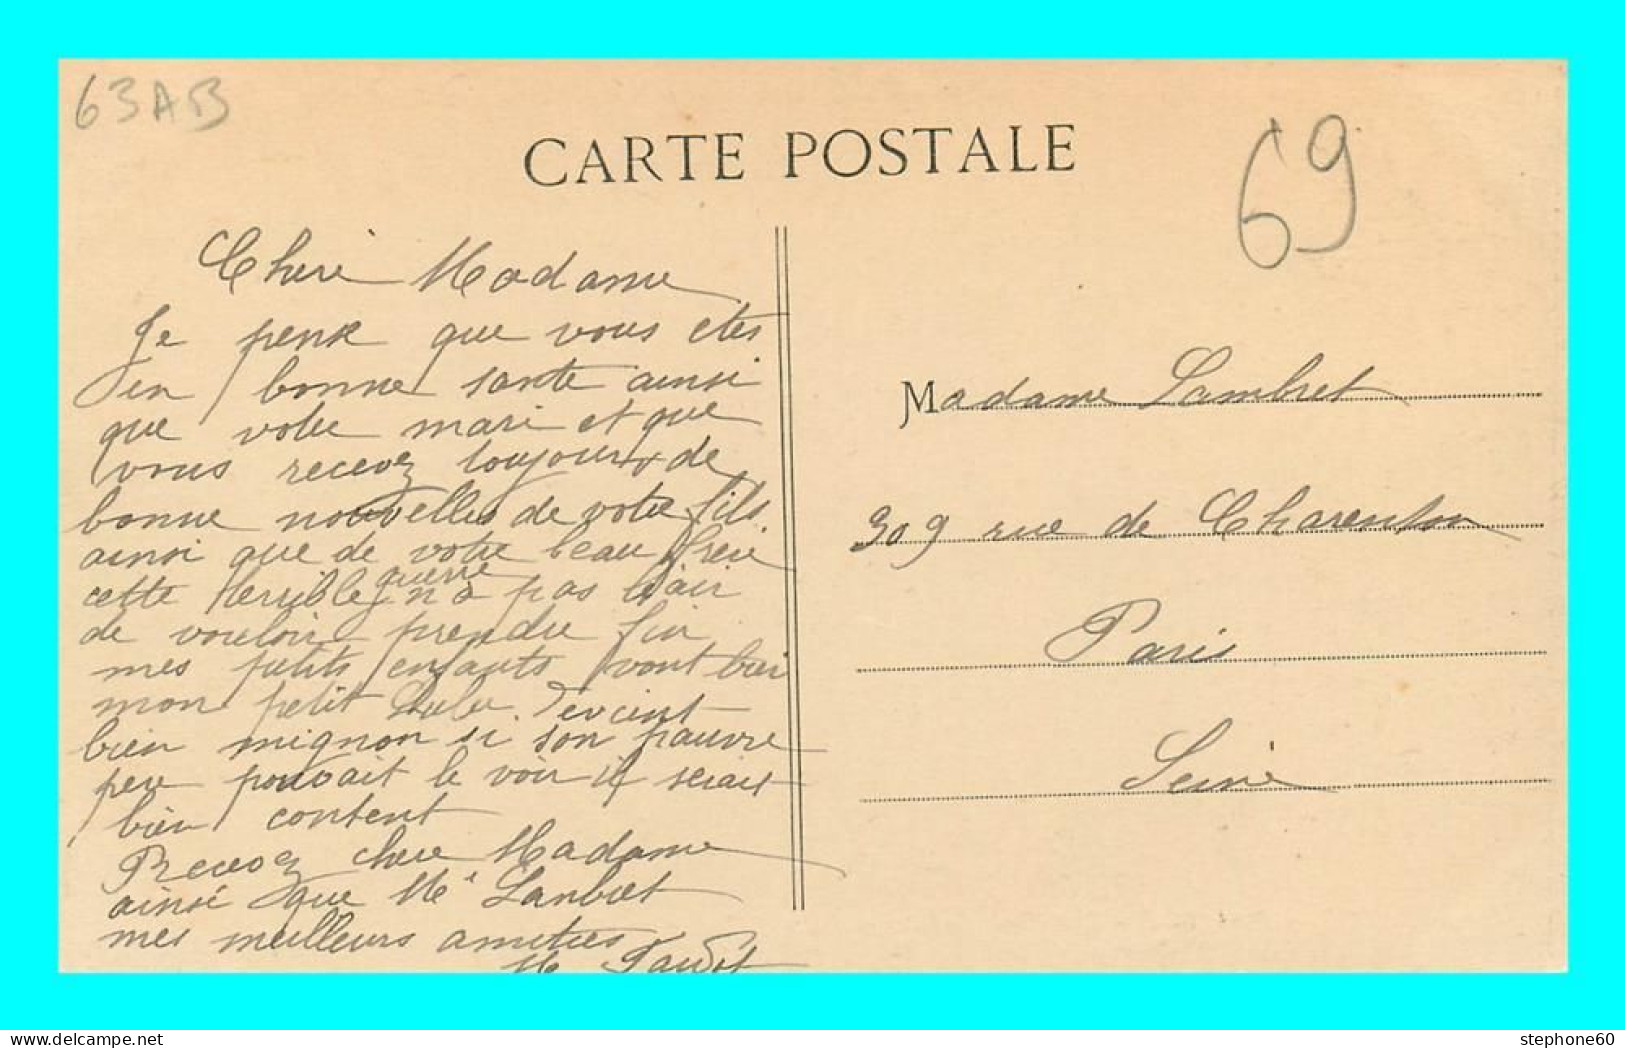 63AB
CARTE POSTALE
69
Chere Madame
Je pense que vous etes
en bonne sante ainsi
que votre mari et que
vous recevez toujours de
bonne nouvelles de votre fils
ainsi que de votre beau frere
cette terrible guerre n'a pas l'air
de vouloir prendre fin
mes petits enfants vont bien
mon petit Lulu devient
bien mignon si son pauvre
pere pouvait le voir il serait
bien content
Recevez chere Madame
ainsi que Mr Lambret
mes meilleurs amities
Madame Lambret
309 rue de Charenton
Paris
Seine
stephone60